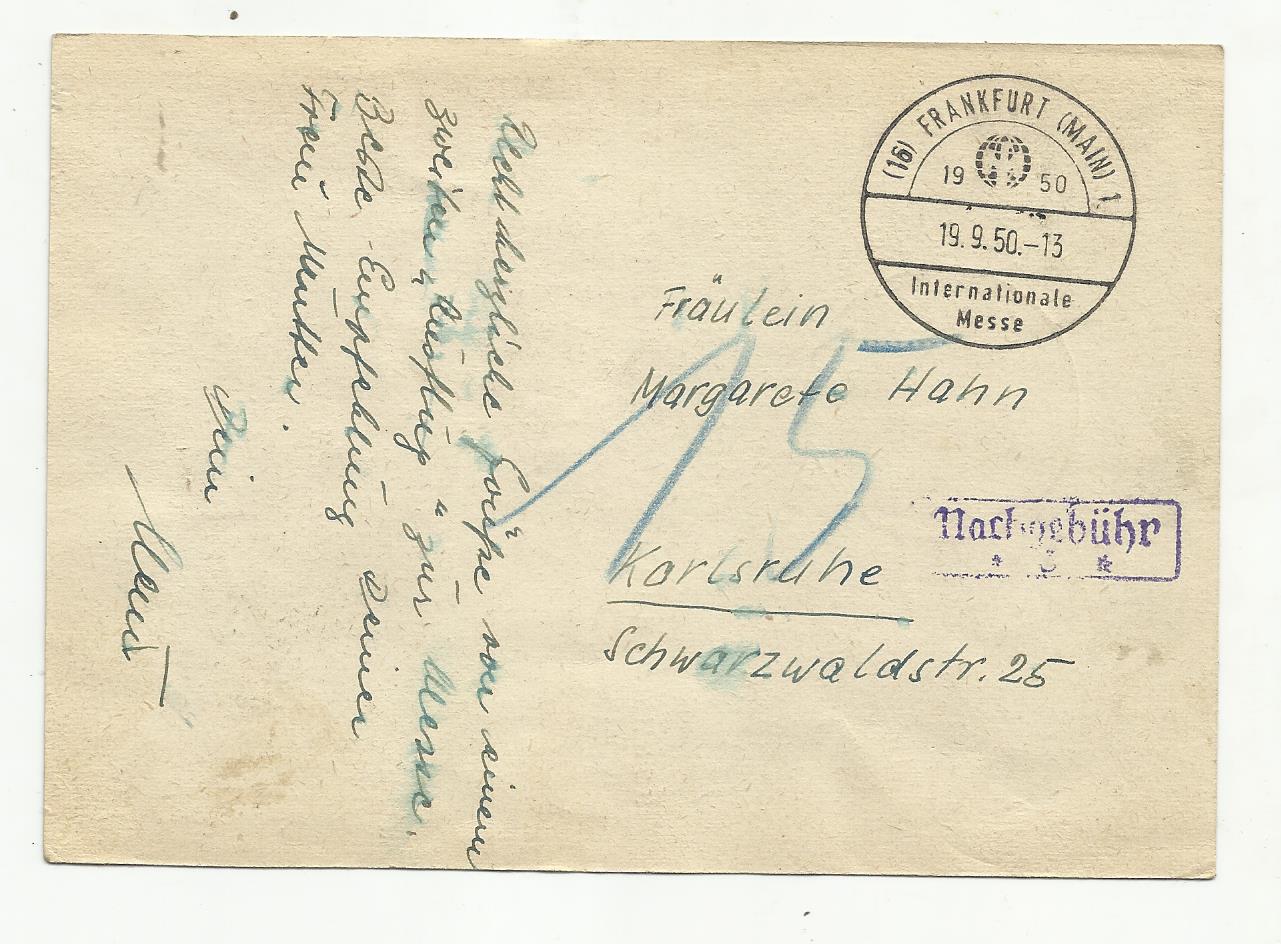 (16) FRANKFURT (MAIN) 1
19 50
19.9.50.-13
Internationale
Messe
Fräulein
Margarete Hahn
Karlsruhe
Schwarzwaldstr. 25
15
Nachgebühr
* 3 *
Recht herzliche Grüße von einem
zweiten „ " zur Messe.
Beste Empfehlung Deiner
Frau Mutter.
Dein